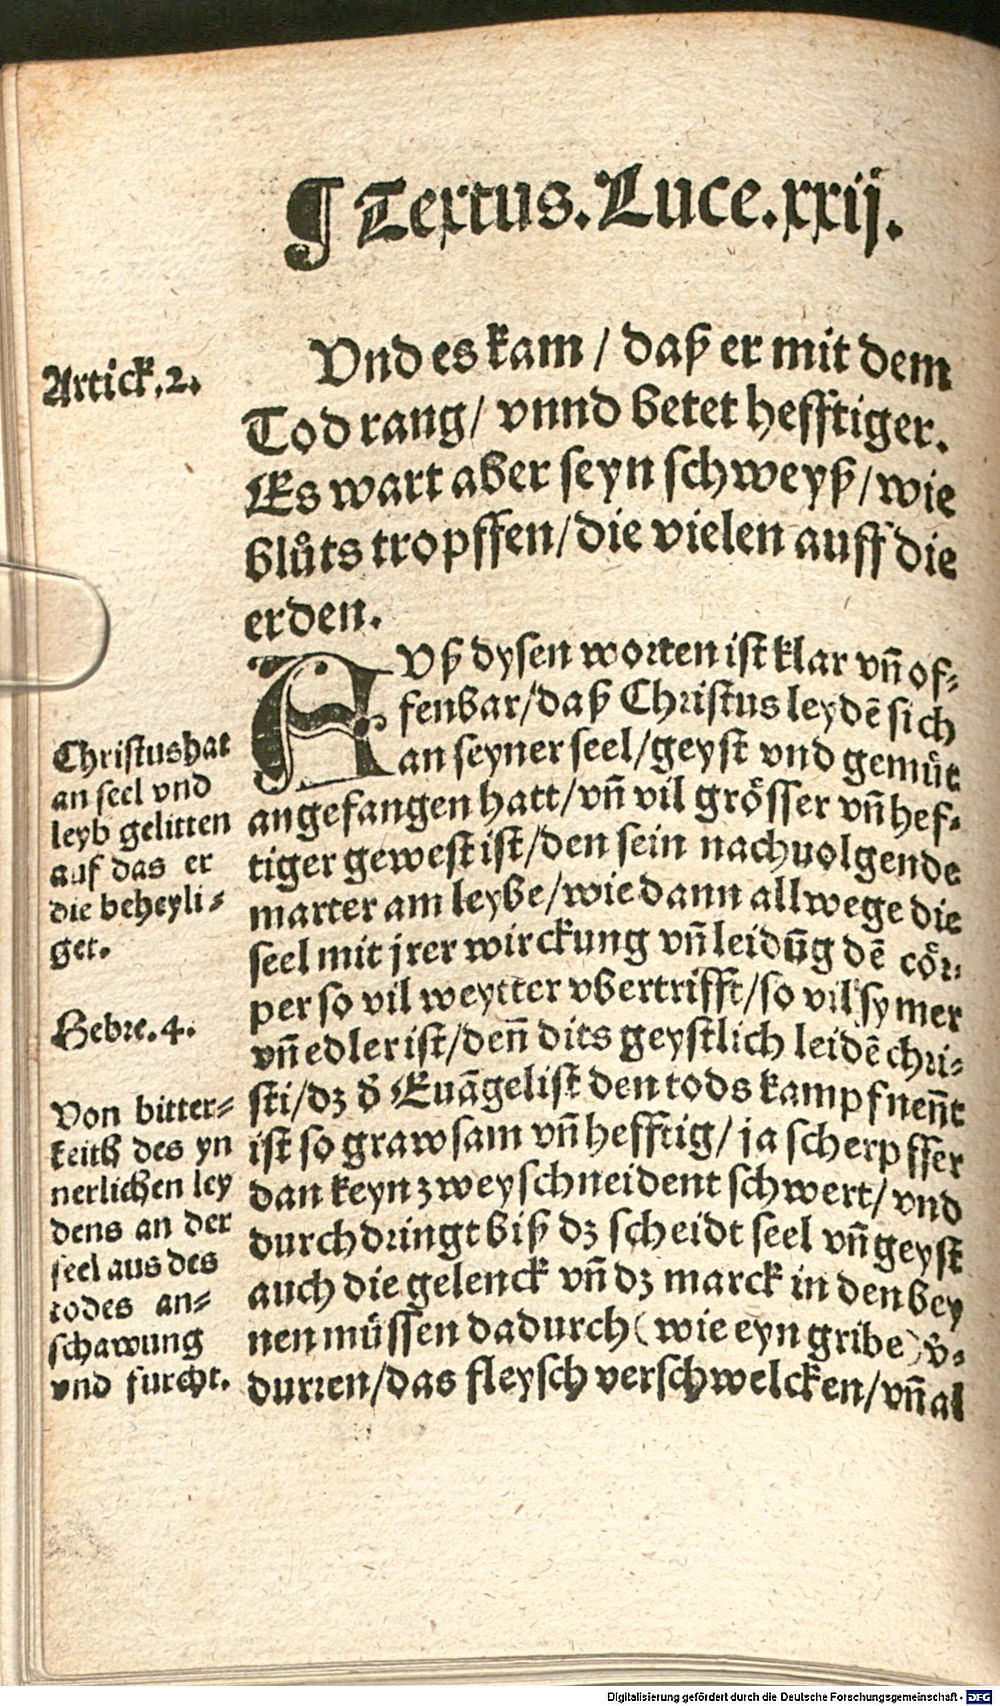 ¶ Textus. Luce. xxij.
Artick. 2.
Vnd es kam / daß er mit dem
Tod rang / vnnd betet hefftiger.
Es wart aber seyn schweyß / wie
blůts tropffen / die vielen auff die
erden.
AVß dysen worten ist klar vn̄ of⸗
fenbar / daß Christus leydē sich
an seyner seel / geyst vnd gemůt
angefangen hatt / vn̄ vil grösser vn̄ hef⸗
tiger gewest ist / den sein nachuolgende
marter am leybe / wie dann allwege die
seel mit jrer wirckung vn̄ leidūg dē cör⸗
per so vil weytter vbertrifft / so vil sy mer
vn̄ edler ist / den̄ dits geystlich leidē chri⸗
sti / dz d̄ Euāgelist den tods kampf nen̄t
ist so grawsam vn̄ hefftig / ja scherpffer
dan keyn zweyschneident schwert / vnd
durchdringt biß dz scheidt seel vn̄ geyst
auch die gelenck vn̄ dz marck in den bey
nen müssen dadurch (wie eyn gribe) v̄⸗
durren / das fleysch verschwelcken / vn̄ al
Christus hat
an seel vnd
leyb gelitten
auf das er
die beheyli⸗
get.
Hebre. 4.
Von bitter⸗
keith des yn
nerlichen ley
dens an der
seel aus des
todes an⸗
schawung
vnd furcht.
Digitalisierung gefördert durch die Deutsche Forschungsgemeinschaft - DFG